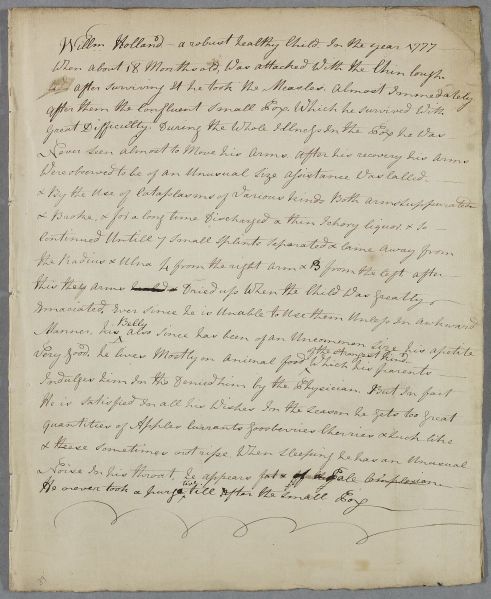 Willm Holland - a robust healthy Child. In the year 1777
When about 18 Months old, Was attacked With the Chin Cough
after surviving It he took the Measles. Almost Immediately
after them the Confluent Small Pox. Which he survived With
Great Difficulty. During the Whole Illness In the Pox he Was
Never seen almost to Move his Arms. After his recovery his Arms
Were observed to be of an Unusual Size Assistance Was Called
& By the Use of Cataplasms of Various kinds Both arms suppurated
& Broke, & for a long time Discharged a thin Ichory liquor & so
continued Untill 7 Small Splints Separated & Came Away from
the Radius & Ulna 4 from the right Arm & 3 from the left after
this they Arms Dried up When the Child Was Greatly
Emaciated, Ever since he is Unable to Use them Unless In Awkward
Manner, his Belly also Since has been of an Uncommon Size his apetite
Very Good. he lives Mostly on Animal food of the strongest kind Which his parents
Indulges him In tho Denied him by the Physician. But In fact
He is Satisfied In all his Wishes In the Season he Gets too Great
quantities of Apples Currants Gooseberries Cherries & such like
& these sometimes not ripe. When Sleeping he has an Unusual
Noise In his throat, he appears fat & Pale Complexion
He never took a purge till After the Small Pox